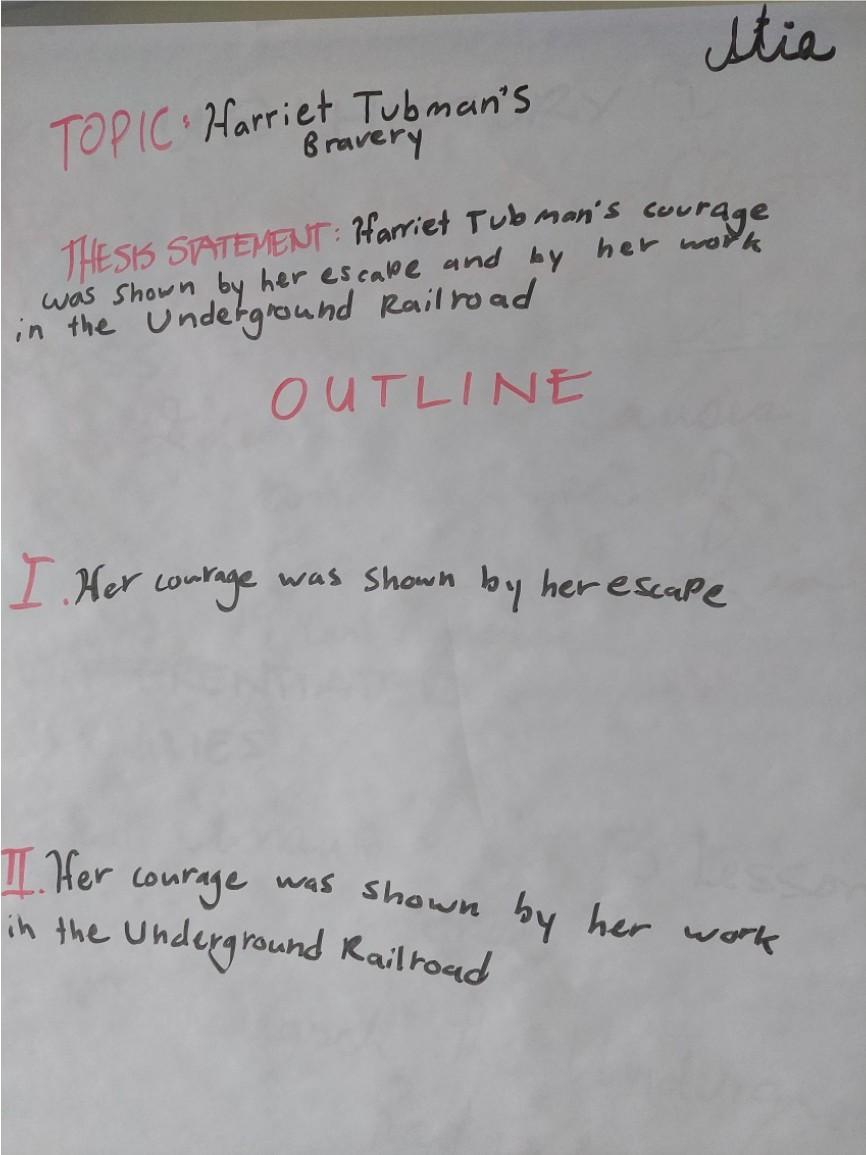 Mia
TOPIC: Harriet Tubman's
Bravery
THESIS STATEMENT: Harriet Tubman's courage
was shown by her escape and by her work
in the Underground Railroad
OUTLINE
I. Her courage was shown by her escape
II. Her courage was shown by her work
in the Underground Railroad